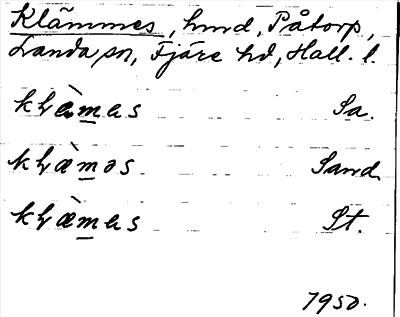 Klämmes, hmd, Påtorp,
Landa sn, Fjäre hd, Hall. l.
Sa.
Sand.
St.
1950.